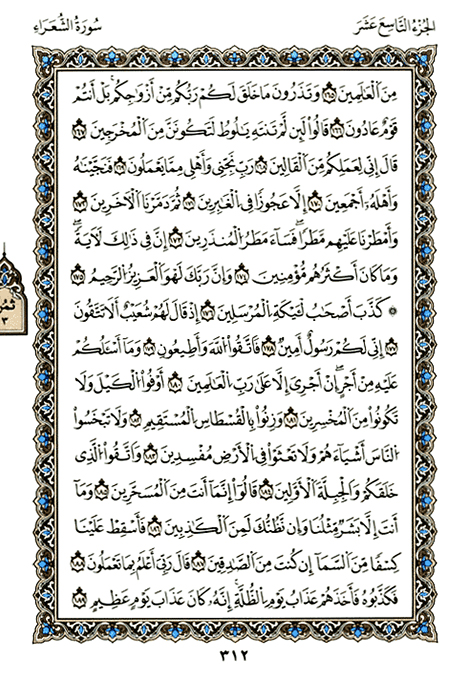 الجُزْءُ التَّاسِعَ عَشَرَ
سُورَةُ الشُّعَرَاءِ
مِنَ ٱلْعَٰلَمِينَ ١٦٥ وَتَذَرُونَ مَا خَلَقَ لَكُمْ رَبُّكُم مِّنْ أَزْوَٰجِكُم ۚ بَلْ أَنتُمْ
قَوْمٌ عَادُونَ ١٦٦ قَالُوا۟ لَئِن لَّمْ تَنتَهِ يَٰلُوطُ لَتَكُونَنَّ مِنَ ٱلْمُخْرَجِينَ ١٦٧
قَالَ إِنِّى لِعَمَلِكُم مِّنَ ٱلْقَالِينَ ١٦٨ رَبِّ نَجِّنِى وَأَهْلِى مِمَّا يَعْمَلُونَ ١٦٩ فَنَجَّيْنَٰهُ
وَأَهْلَهُۥٓ أَجْمَعِينَ ١٧٠ إِلَّا عَجُوزًا فِى ٱلْغَٰبِرِينَ ١٧١ ثُمَّ دَمَّرْنَا ٱلْءَاخَرِينَ ١٧٢
وَأَمْطَرْنَا عَلَيْهِم مَّطَرًا ۖ فَسَآءَ مَطَرُ ٱلْمُنذَرِينَ ١٧٣ إِنَّ فِى ذَٰلِكَ لَءَايَةً ۖ
وَمَا كَانَ أَكْثَرُهُم مُّؤْمِنِينَ ١٧٤ وَإِنَّ رَبَّكَ لَهُوَ ٱلْعَزِيزُ ٱلرَّحِيمُ ١٧٥
كَذَّبَ أَصْحَٰبُ لْـَٔيْكَةِ ٱلْمُرْسَلِينَ ١٧٦ إِذْ قَالَ لَهُمْ شُعَيْبٌ أَلَا تَتَّقُونَ
١٧٧ إِنِّى لَكُمْ رَسُولٌ أَمِينٌ ١٧٨ فَٱتَّقُوا۟ ٱللَّهَ وَأَطِيعُونِ ١٧٩ وَمَآ أَسْـَٔلُكُمْ
عَلَيْهِ مِنْ أَجْرٍ ۖ إِنْ أَجْرِىَ إِلَّا عَلَىٰ رَبِّ ٱلْعَٰلَمِينَ ١٨٠ أَوْفُوا۟ ٱلْكَيْلَ وَلَا
تَكُونُوا۟ مِنَ ٱلْمُخْسِرِينَ ١٨١ وَزِنُوا۟ بِٱلْقِسْطَاسِ ٱلْمُسْتَقِيمِ ١٨٢ وَلَا تَبْخَسُوا۟
ٱلنَّاسَ أَشْيَآءَهُمْ وَلَا تَعْثَوْا۟ فِى ٱلْأَرْضِ مُفْسِدِينَ ١٨٣ وَٱتَّقُوا۟ ٱلَّذِى
خَلَقَكُمْ وَٱلْجِبِلَّةَ ٱلْأَوَّلِينَ ١٨٤ قَالُوٓا۟ إِنَّمَآ أَنتَ مِنَ ٱلْمُسَحَّرِينَ ١٨٥ وَمَآ
أَنتَ إِلَّا بَشَرٌ مِّثْلُنَا وَإِن نَّظُنُّكَ لَمِنَ ٱلْكَٰذِبِينَ ١٨٦ فَأَسْقِطْ عَلَيْنَا
كِسَفًا مِّنَ ٱلسَّمَآءِ إِن كُنتَ مِنَ ٱلصَّٰدِقِينَ ١٨٧ قَالَ رَبِّىٓ أَعْلَمُ بِمَا تَعْمَلُونَ ١٨٨
فَكَذَّبُوهُ فَأَخَذَهُمْ عَذَابُ يَوْمِ ٱلظُّلَّةِ ۚ إِنَّهُۥ كَانَ عَذَابَ يَوْمٍ عَظِيمٍ ١٨٩
٣١٢